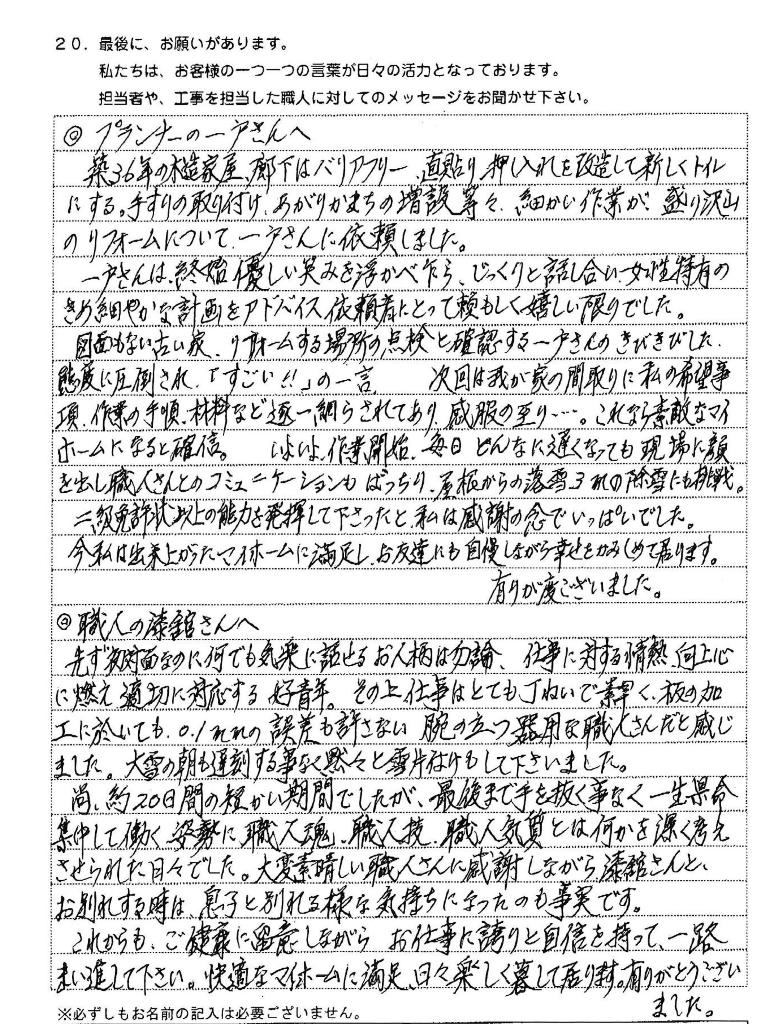 20．最後に、お願いがあります。
私たちは、お客様の一つ一つの言葉が日々の活力となっております。
担当者や、工事を担当した職人に対してのメッセージをお聞かせ下さい。
◎ プランナーの一戸さんへ
築36年の木造家屋、廊下はバリアフリー、直貼り、押し入れを改造して新しくトイレ
にする。手すりの取り付け、あがりかまちの増設等々、細かい作業が、盛り沢山
のリフォームについて、一戸さんに依頼しました。
一戸さんは、終始優しい笑みを浮かべ乍ら、じっくりと話し合い女性特有の
きめ細やかな計画をアドバイス、依頼者にとって頼もしく嬉しい限りでした。
図面もない古い家、リフォームする場所の点検と確認する一戸さんのきびきびした、
態度に圧倒され、「すごい!!」の一言　次回は我が家の間取りに私の希望事
項、作業の手順、材料など逐一網らされてあり、感服の至り…。これなら素敵なマイ
ホームになると確信。　いよいよ、作業開始、毎日どんなに遅くなっても現場に顔
を出し職人さんとのコミュニケーションもばっちり、屋根からの落雪それの除雪にも挑戦。
二級免許状以上の能力を発揮して下さったと、私は感謝の念でいっぱいでした。
今私は出来上がったマイホームに満足し、お友達にも自慢しながら幸せをかみしめて居ります。
有りが度ございました。
◎ 職人の漆舘さんへ
先ず初対面なのに何でも気楽に話せるお人柄は勿論、仕事に対する情熱、向上心
に燃え適切に対応する好青年。その上仕事はとても丁ねいで素早く、板の加
工に於いても、0.1㎜の誤差も許さない腕の立つ器用な職人さんだと感じ
ました。大雪の朝も遅刻する事なく黙々と雪片付けもして下さいました。
尚、約20日間の短かい期間でしたが、最後まで手を抜く事なく一生県命
集中して働く姿勢に職人魂、職人技、職人気質とは何かを深く考え
させられた日々でした。大変素晴しい職人さんに感謝しながら漆舘さんと、
お別れする時は、息子と別れる様な気持ちになったのも事実です。
これからも、ご健康に留意しながらお仕事に誇りと自信を持って、一路
まい進して下さい。快適なマイホームに満足、日々楽しく暮して居ります。有りがとうござい
ました。
※必ずしもお名前の記入は必要ございません。